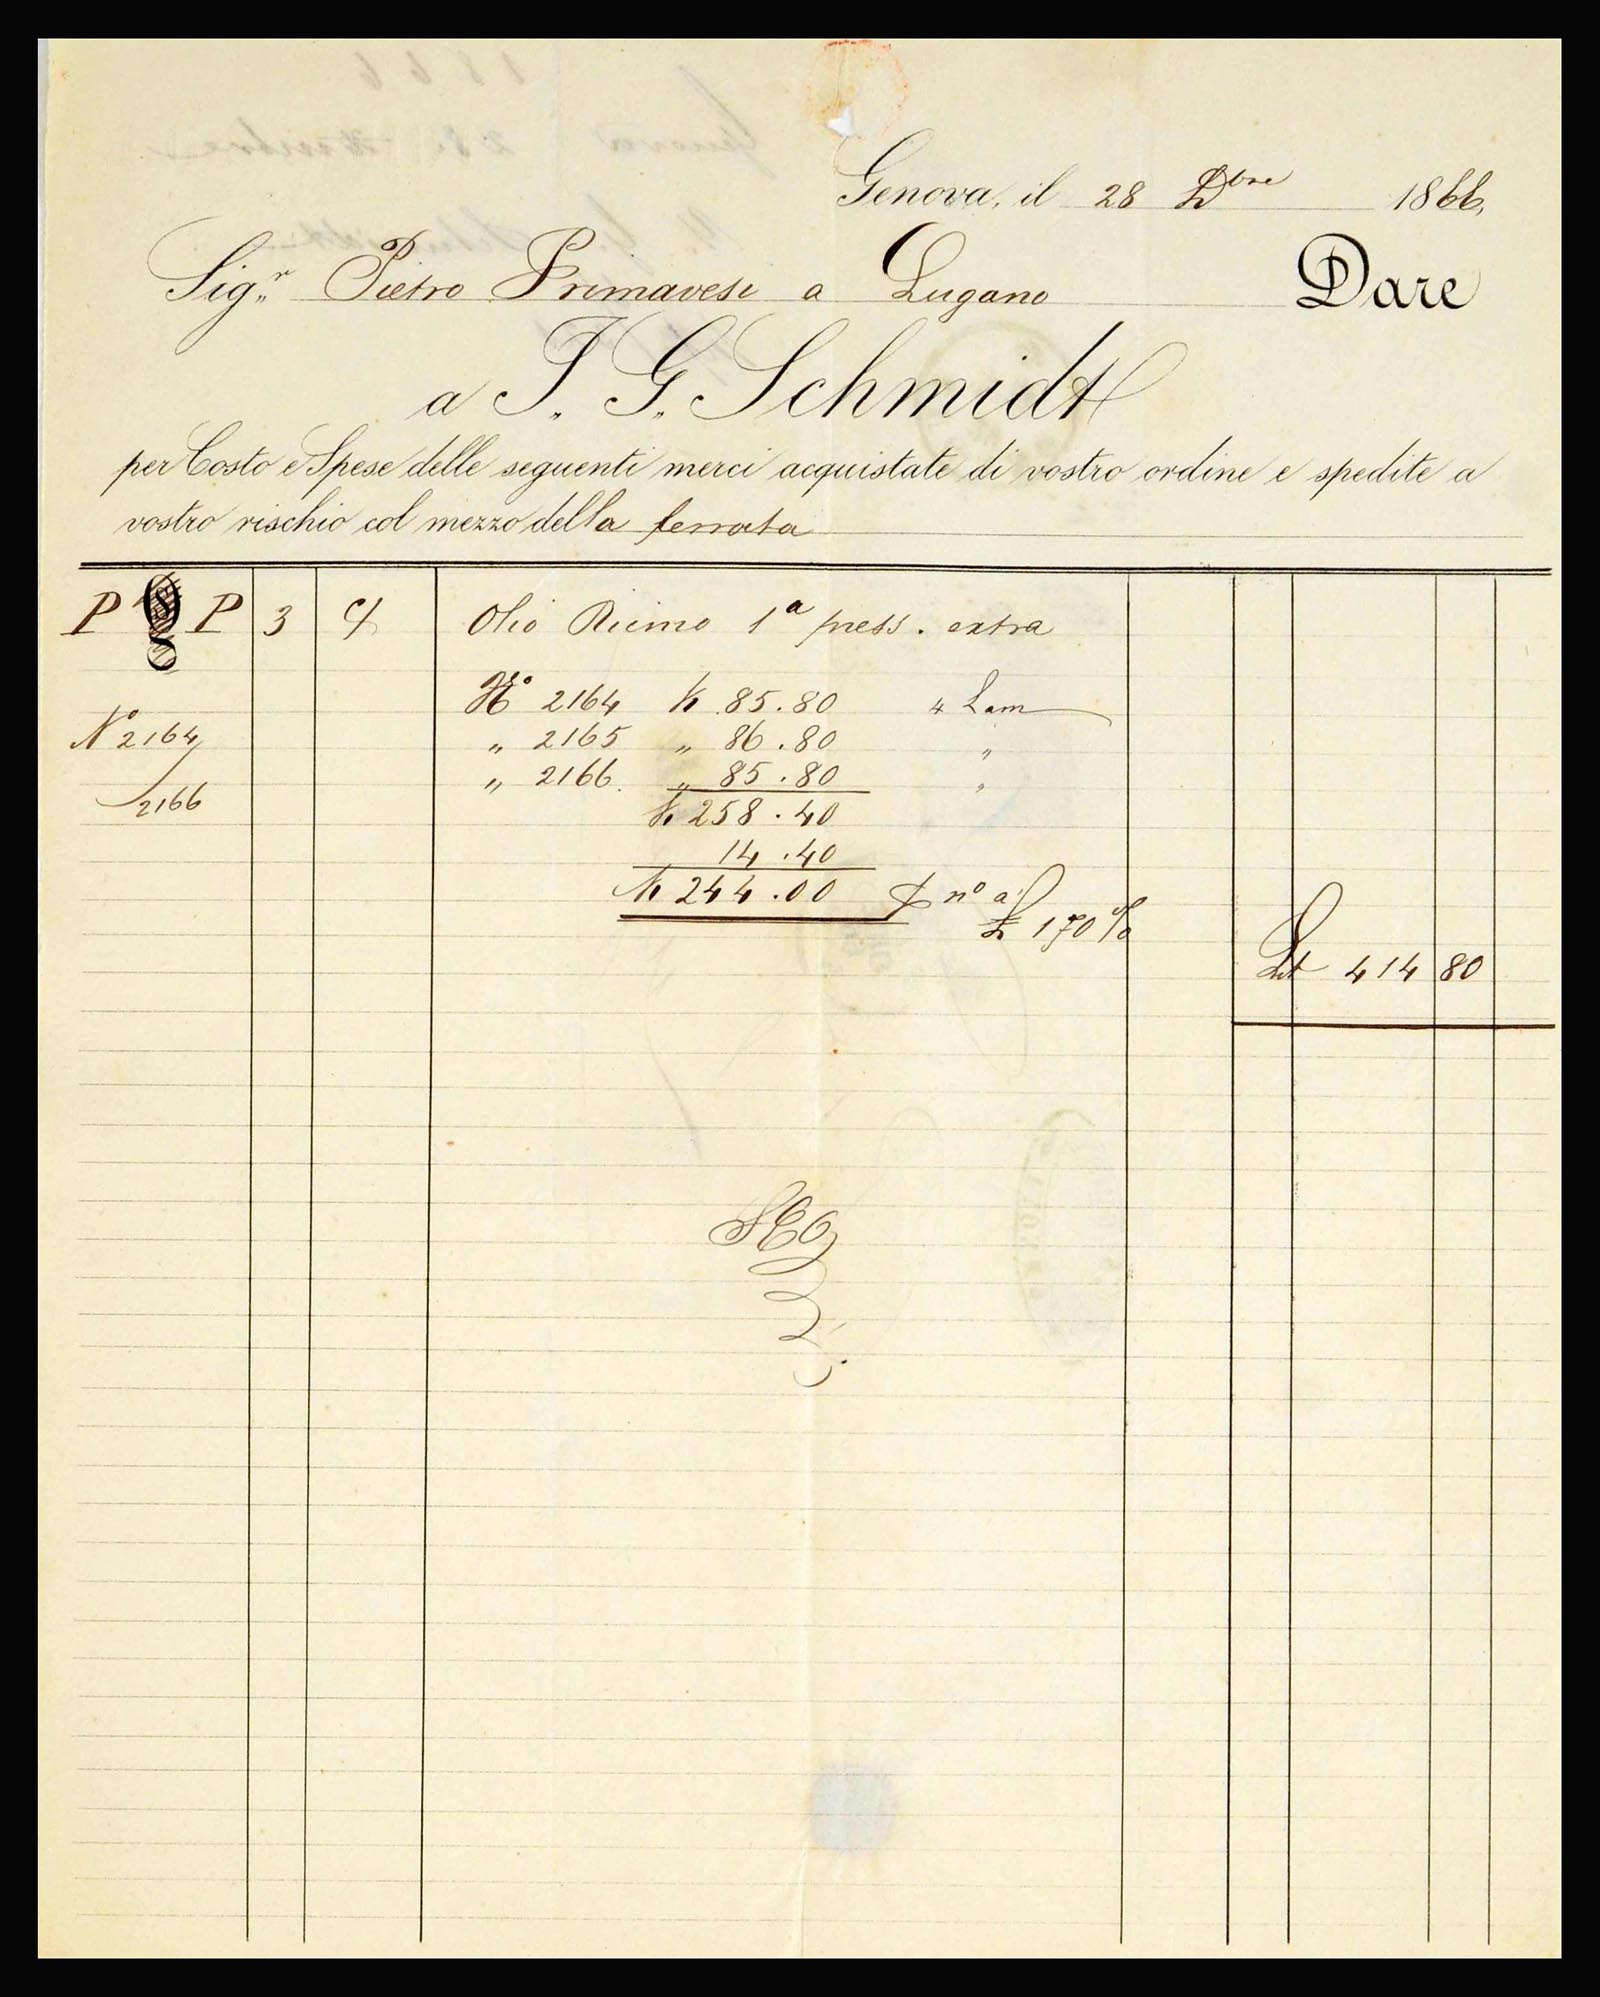 Genova, il 28 Dbre 1866,
Sigr. Pietro Primavesi a Lugano Dare
a J. G. Schmidt
per Costo e Spese delle seguenti merci acquistate di vostro ordine e spedite a
vostro rischio col mezzo della ferrata
P P 3 Olio Ricino 1a press. extra
No 2164 K 85.80 4 Lam
No 2164
" 2165 " 86.80 "
" 2166. " 85.80 "
2166
K 258.40
14.40
K 244.00 no a
£ 170 %
Lit 414 80